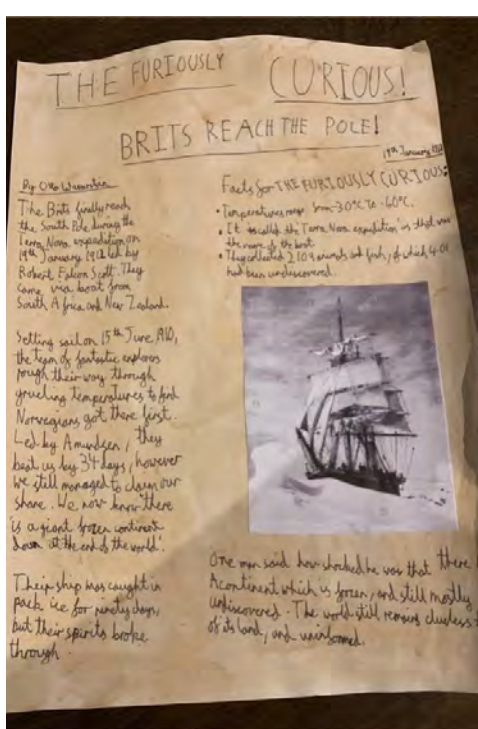 THE FURIOUSLY CURIOUS!
BRITS REACH THE POLE!
19th January 1912
By Otto
The Brits finally reach
the South Pole during the
Terra Nova expedition on
19th January 1912 led by
Robert Falcon Scott. They
came via boat from
South Africa and New Zealand.
Setting sail on 15th June 1910,
the team of fantastic explorers
rough their way through
grueling temperatures to find
Norwegians got there first.
Led by Amundsen, they
beat us by 34 days, however
we still managed to claim our
share. We now know 'there
is a giant frozen continent
down at the end of the world'.
Their ship was caught in
pack ice for ninety days,
but their spirits broke
through.
Facts for THE FURIOUSLY CURIOUS:
• Temperatures range from -30°C to -60°C.
• It is called the 'Terra Nova expedition' as that was
the name of the boat.
• They collected 2109 animals and fish, of which 401
had been undiscovered.
One man said how shocked he was that there
A continent which is frozen, and still mostly
undiscovered. The world still remains clueless
of its land, and uninformed.